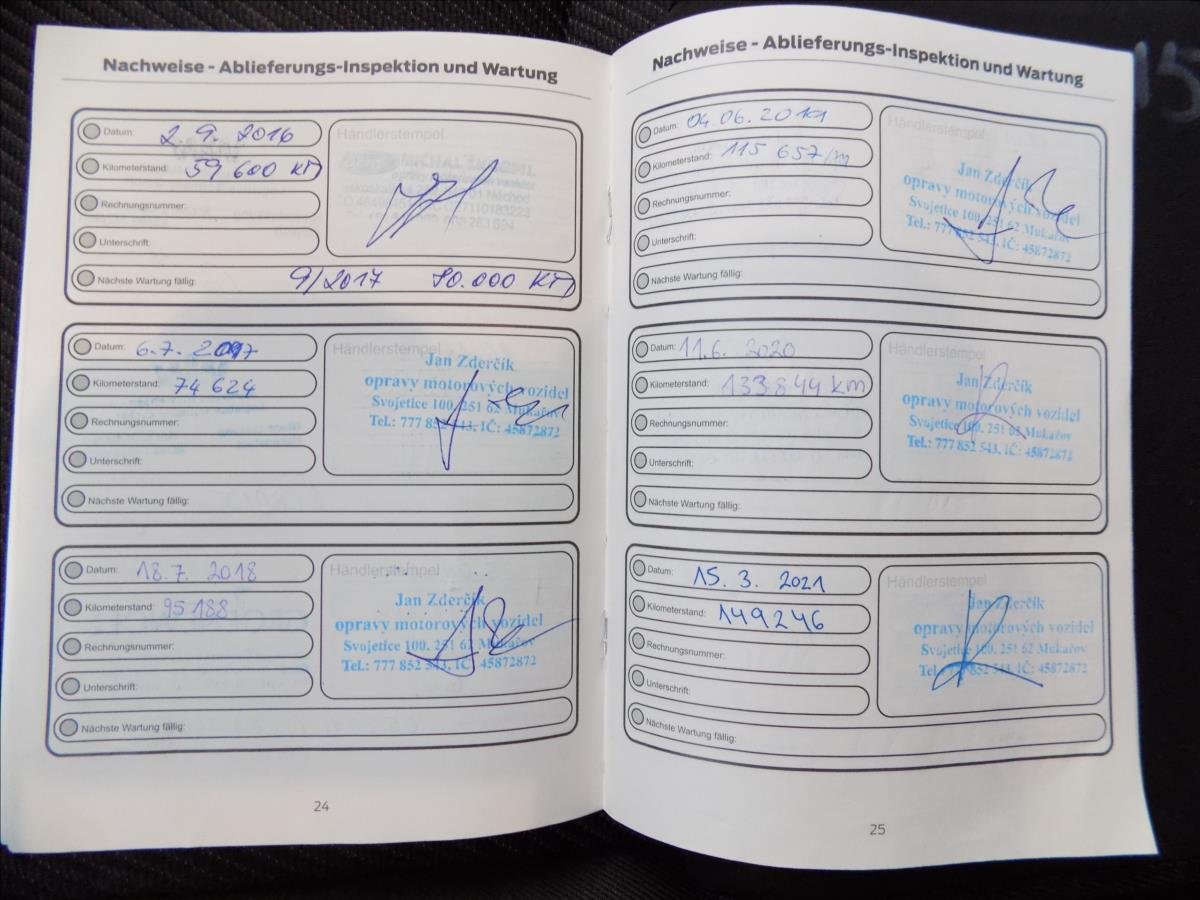 Nachweise - Ablieferungs-Inspektion und Wartung
Datum: 2.9. 2016
Kilometerstand: 59 600 KM
Rechnungsnummer:
Unterschrift:
Nächste Wartung fällig: 9/2017 80.000 KM
Händlerstempel
MICHAL
opravy
Náchod
Datum: 6.7. 2017
Kilometerstand: 74 624
Rechnungsnummer:
Unterschrift:
Nächste Wartung fällig:
Händlerstempel
Jan Zderčík
opravy motorových vozidel
Svojetice 100, 251 62 Mukařov
Tel.: 777 852 543, IČ: 45872872
Datum: 18.7. 2018
Kilometerstand: 95 188
Rechnungsnummer:
Unterschrift:
Nächste Wartung fällig:
Händlerstempel
Jan Zderčík
opravy motorových vozidel
Svojetice 100, 251 62 Mukařov
Tel.: 777 852 543, IČ: 45872872
24
Nachweise - Ablieferungs-Inspektion und Wartung
Datum: 04 06. 2019
Kilometerstand: 115 657
Rechnungsnummer:
Unterschrift:
Nächste Wartung fällig:
Händlerstempel
Jan Zderčík
opravy motorových vozidel
Svojetice 100, 251 62 Mukařov
Tel.: 777 852 543, IČ: 45872872
Datum: 11.6. 2020
Kilometerstand: 133 844 km
Rechnungsnummer:
Unterschrift:
Nächste Wartung fällig:
Händlerstempel
Jan Zderčík
opravy motorových vozidel
Svojetice 100, 251 62 Mukařov
Tel.: 777 852 543, IČ: 45872872
Datum: 15. 3. 2021
Kilometerstand: 149246
Rechnungsnummer:
Unterschrift:
Nächste Wartung fällig:
Händlerstempel
Jan Zderčík
opravy motorových vozidel
Svojetice 100, 251 62 Mukařov
Tel.: 777 852 543, IČ: 45872872
25